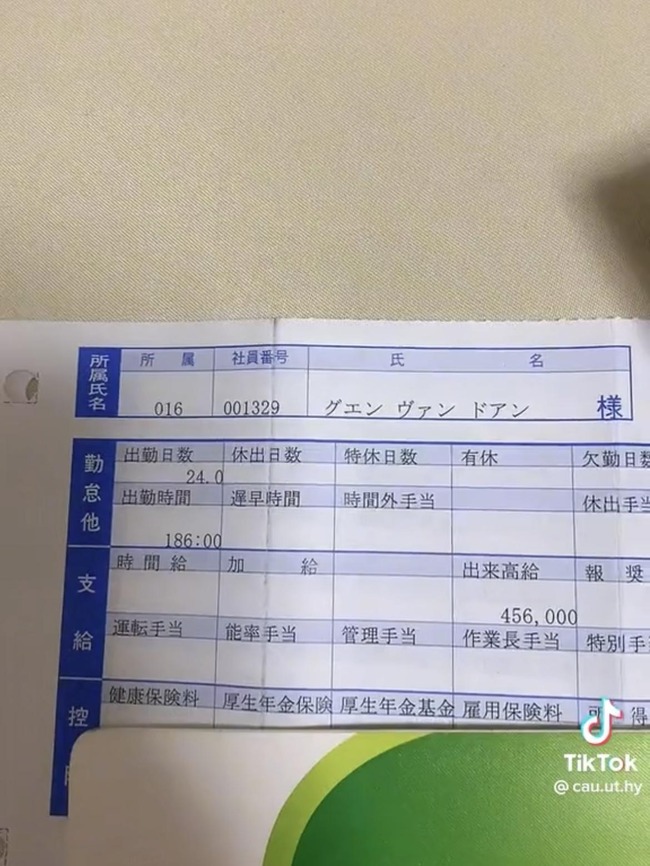 所属氏名
所 属 社員番号 氏 名
016 001329 グエン ヴァン ドアン 様
勤怠他
出勤日数 休出日数 特休日数 有休 欠勤日数
24.0
出勤時間 遅早時間 時間外手当 休出手当
186:00
支給
時間給 加 給 出来高給 報 奨
456,000
運転手当 能率手当 管理手当 作業長手当 特別手
控
健康保険料 厚生年金保険 厚生年金基金 雇用保険料 得
TikTok
@ cau.ut.hy